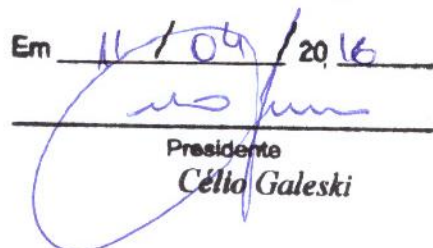 Em 11 / 04 / 20 16
Presidente
Célio Galeski